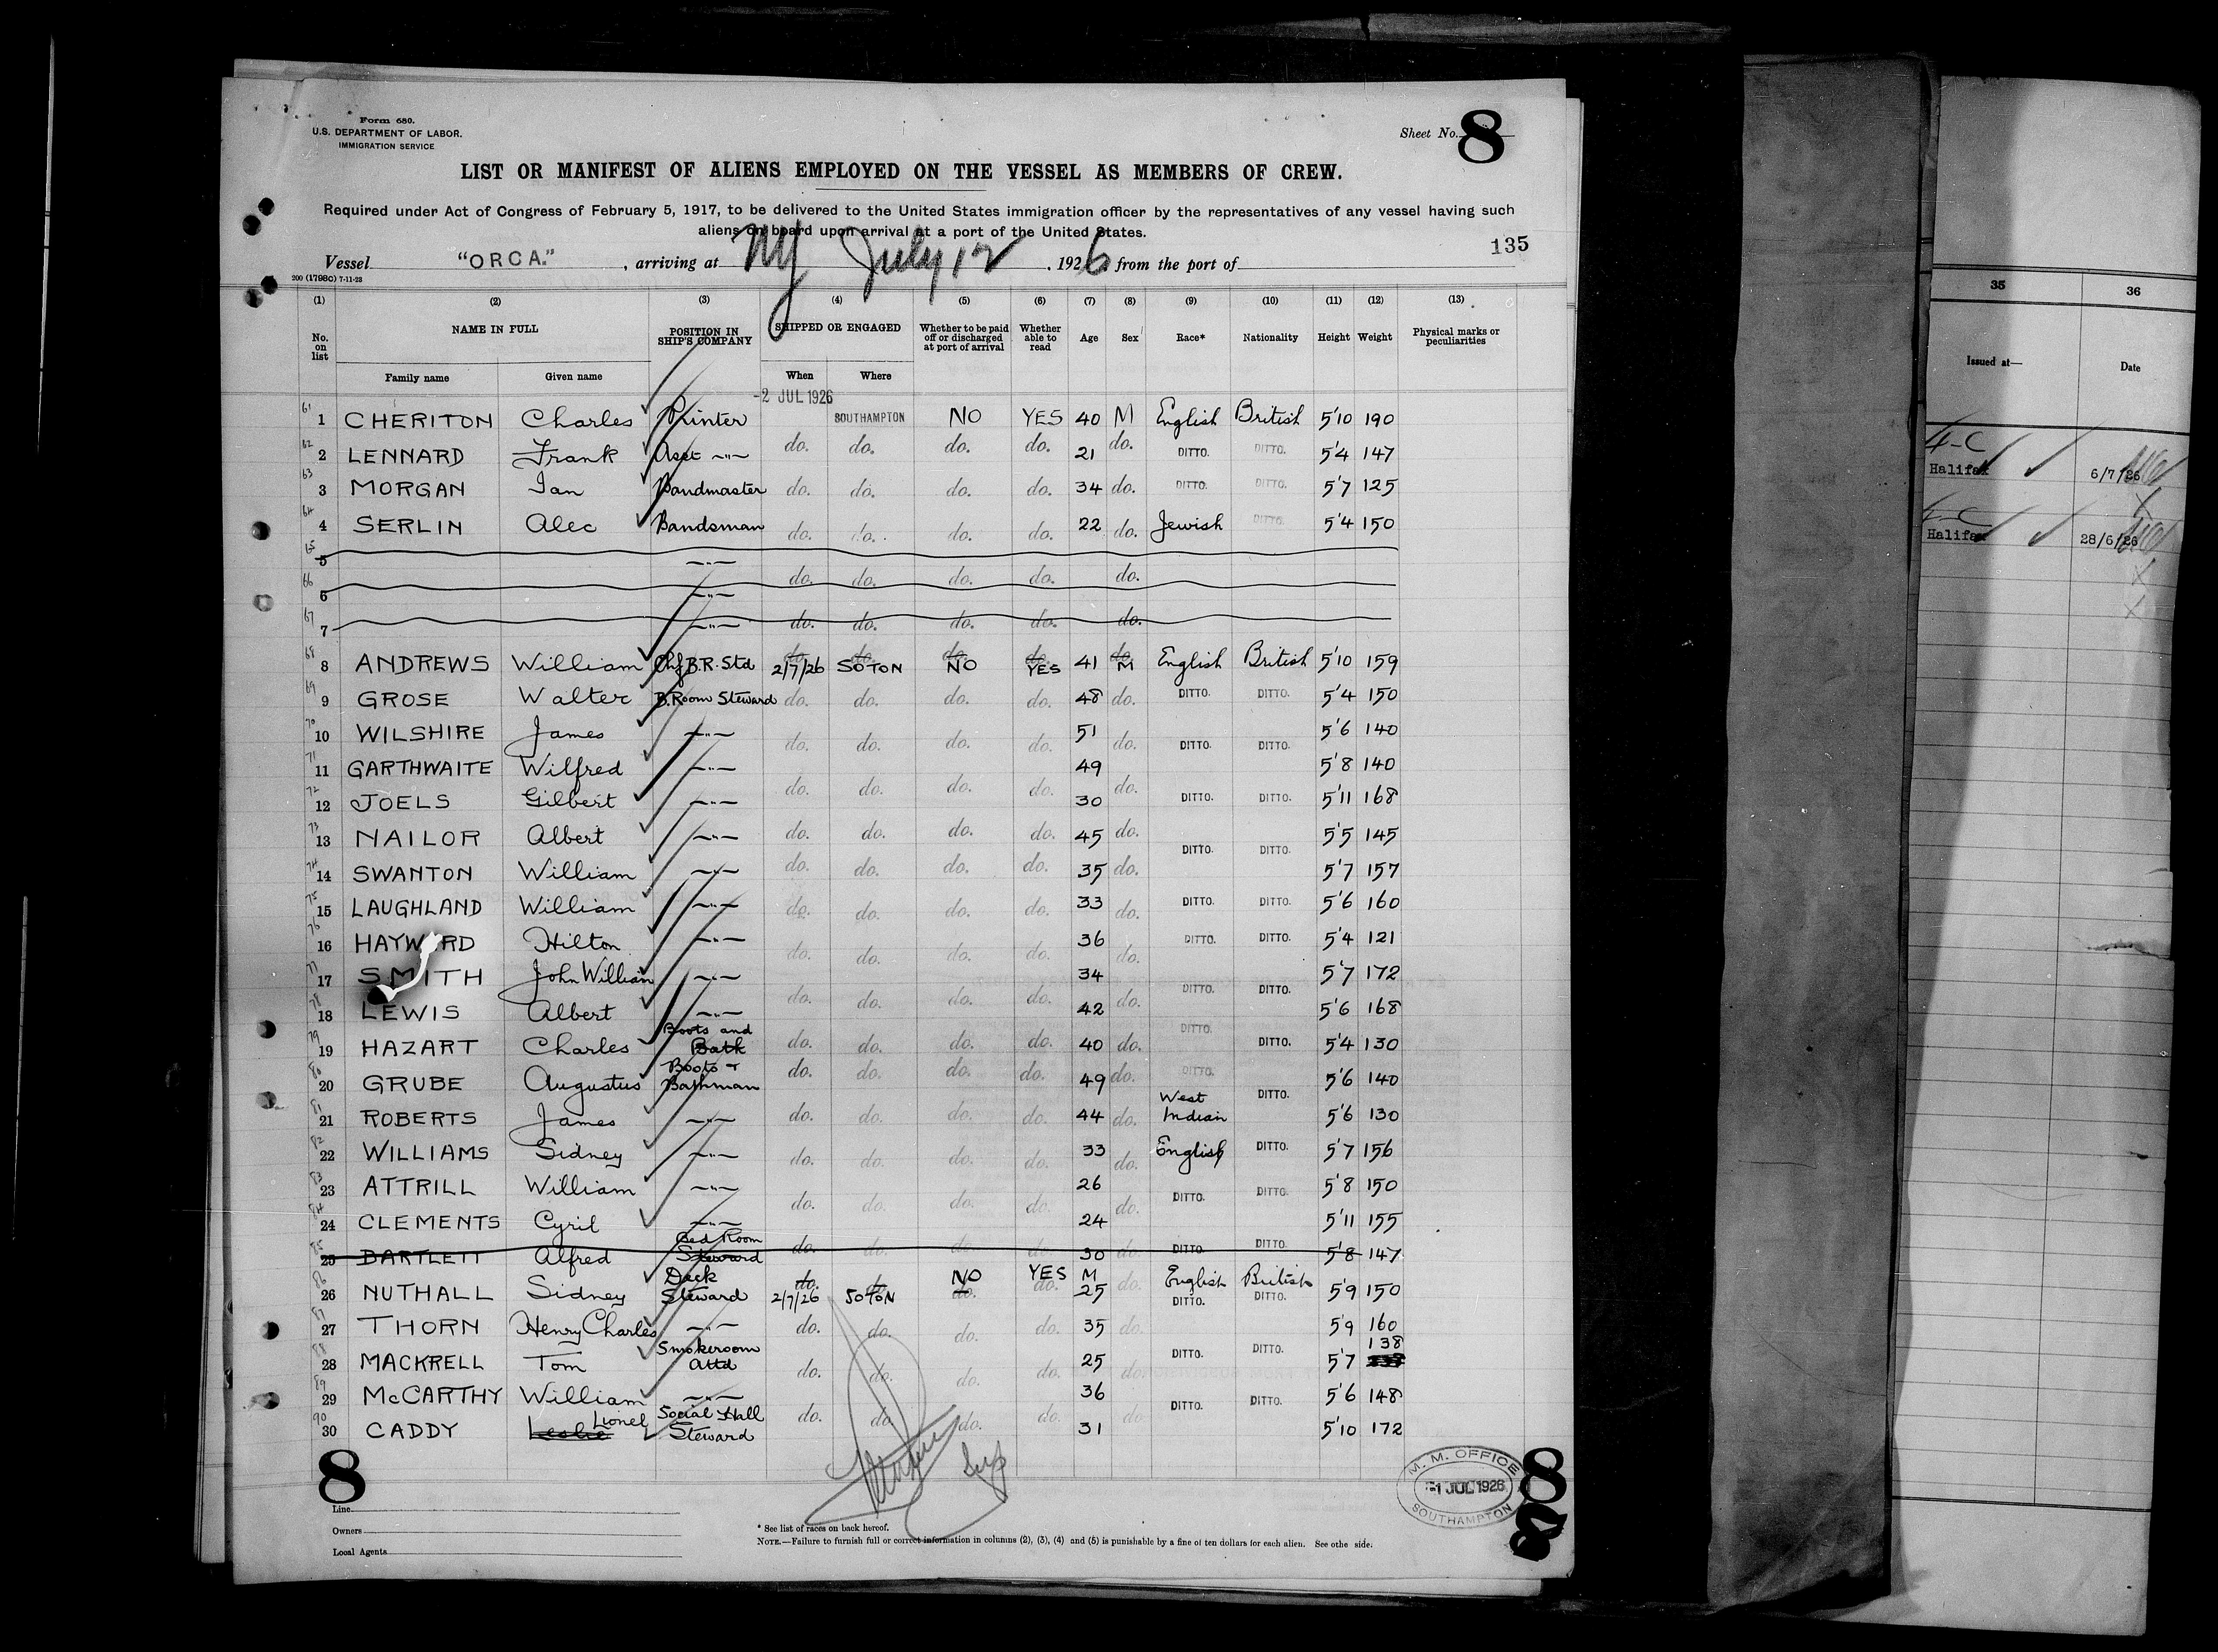 Form 680.
U.S. DEPARTMENT OF LABOR.
IMMIGRATION SERVICE
Sheet No. 8
LIST OR MANIFEST OF ALIENS EMPLOYED ON THE VESSEL AS MEMBERS OF CREW.
Required under Act of Congress of February 5, 1917, to be delivered to the United States immigration officer by the representatives of any vessel having such
aliens on board upon arrival at a port of the United States.
135
Vessel "ORCA." , arriving at NY July 12 , 1926 from the port of
200 (1798c) 7-11-23
(1) (2) (3) (4) (5) (6) (7) (8) (9) (10) (11) (12) (13)
No. on list NAME IN FULL POSITION IN SHIP'S COMPANY SHIPPED OR ENGAGED Whether to be paid off or discharged at port of arrival Whether able to read Age Sex Race* Nationality Height Weight Physical marks or peculiarities
Family name Given name When Where
-2 JUL 1926
61 1 CHERITON Charles Printer SOUTHAMPTON NO YES 40 M English British 5'10 190
62 2 LENNARD Frank Asst -"- do. do. do. do. 21 do. DITTO. DITTO. 5'4 147
63 3 MORGAN Ian Bandmaster do. do. do. do. 34 do. DITTO. DITTO. 5'7 125
64 4 SERLIN Alec Bandsman do. do. do. do. 22 do. Jewish DITTO. 5'4 150
65 5 -"- do. do. do. do. do.
66 6 -"-
67 7 -"- do. do. do. do. do.
68 8 ANDREWS William Chf B.R. Std do. 2/7/26 do. SOTON do. NO do. YES 41 do. M English British 5'10 159
69 9 GROSE Walter B.Room Steward do. do. do. do. 48 do. DITTO. DITTO. 5'4 150
70 10 WILSHIRE James -"- do. do. do. do. 51 do. DITTO. DITTO. 5'6 140
71 11 GARTHWAITE Wilfred -"- 49 5'8 140
72 12 JOELS Gilbert -"- do. do. do. do. 30 do. DITTO. DITTO. 5'11 168
73 13 NAILOR Albert -"- do. do. do. do. 45 do. DITTO. DITTO. 5'5 145
74 14 SWANTON William -"- do. do. do. do. 35 do. 5'7 157
75 15 LAUGHLAND William -"- do. do. do. do. 33 do. DITTO. DITTO. 5'6 160
76 16 HAYWARD Hilton -"- do. do. do. do. 36 do. DITTO. DITTO. 5'4 121
77 17 SMITH John William -"- 34 DITTO. DITTO. 5'7 172
78 18 LEWIS Albert -"- do. do. do. do. 42 do. DITTO. 5'6 168
79 19 HAZART Charles Boots and Bath do. do. do. do. 40 do. DITTO. 5'4 130
80 20 GRUBE Augustus Boots + Bathman do. do. do. do. 49 do. DITTO. DITTO. 5'6 140
81 21 ROBERTS James -"- do. do. do. do. 44 do. West Indian 5'6 130
82 22 WILLIAMS Sidney -"- do. do. do. do. 33 do. English DITTO. 5'7 156
83 23 ATTRILL William -"- 26 DITTO. DITTO. 5'8 150
84 24 CLEMENTS Cyril -"- do. do. do. do. 24 do. 5'11 155
85 25 BARTLETT Alfred Bed Room Steward do. do. do. do. 30 do. DITTO. DITTO. 5'8 147
86 26 NUTHALL Sidney Deck Steward do. 2/7/26 do. SOTON NO do. YES do. M 25 do. English DITTO. British DITTO. 5'9 150
87 27 THORN Henry Charles -"- do. do. do. do. 35 do. 5'9 160
88 28 MACKRELL Tom Smokeroom Attd do. do. do. do. 25 do. DITTO. DITTO. 5'7 138
89 29 McCARTHY William -"- 36 DITTO. DITTO. 5'6 148
90 30 CADDY Leslie Lionel Social Hall Steward do. do. do. do. 31 do 5'10 172
8
M. M. OFFICE
-1 JUL 1926
SOUTHAMPTON
8
Line
Owners
Local Agents
* See list of races on back hereof.
NOTE.—Failure to furnish full or correct information in columns (2), (3), (4) and (5) is punishable by a fine of ten dollars for each alien. See othe side.
35 36
Issued at— Date
4-C
Halifax 6/7/26
4-C
Halifax 28/6/26